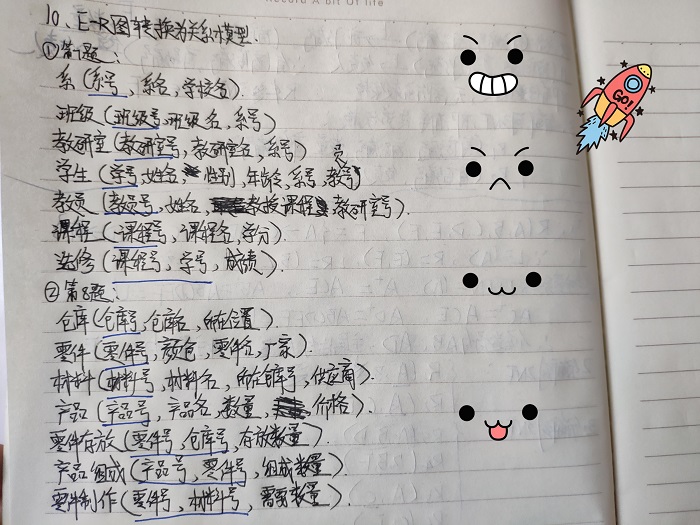 Record A Bit Of life
10、E-R图转换为关系模型.
①第7题:
系(系号, 系名, 学校名).
班级(班级号,班级名,系号)
教研室(教研室号,教研室名,系号)
学生(学号,姓名,性别,年龄,系号,教员号)
教员(教员号,姓名,教授课程,教研室号).
课程(课程号,课程名,学分).
选修(课程号,学号,成绩).
②第8题:
仓库(仓库号,仓库名,所在位置).
零件(零件号,颜色,零件名,厂家).
材料(材料号,材料名,所在库号,供应商).
产品(产品号,产品名,数量,价格).
零件存放(零件号,仓库号,存放数量).
产品组成(产品号,零件号,组成数量).
零件制作(零件号,材料号,需要数量).
GO!